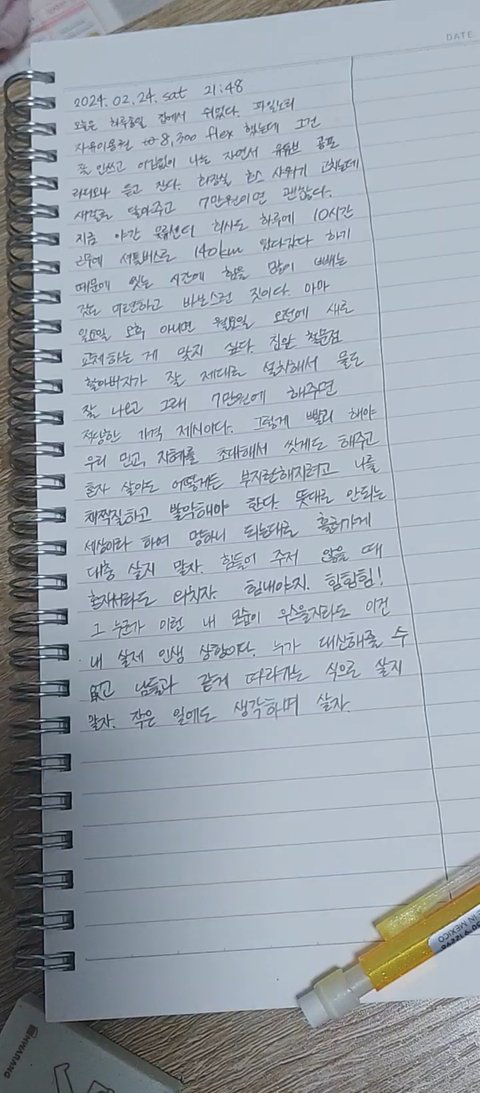 DATE
2024. 02. 24. sat 21:48
오늘은 하루종일 집에서 쉬었다. 파일노리
자유이용권 8,300 flex 했는데 그건
잘 안쓰고 어김없이 나는 자면서 유튜브 공포
라디오나 듣고 잔다. 화장실 호스 샤워기 고치는데
새걸로 달아주고 7만원이면 괜찮다.
지금 야간 물류센터 회사도 하루에 10시간
근무에 셔틀버스로 140km 왔다갔다 하기
때문에 씻는 시간에 힘을 많이 빼는
것은 미련하고 바보스런 짓이다. 아마
일요일 오후 아니면 월요일 오전에 새로
교체하는 게 맞지 싶다. 집앞 철물점
할아버지가 잘 제대로 설치해서 물도
잘 나오고 그래 7만원에 해주면
적당한 가격 제시이다. 그렇게 빨리 해야
우리 민교, 지혜를 초대해서 씻게도 해주고
혼자 살아도 어떻게든 부지런해지려고 나를
채찍질하고 발악해야 한다. 뜻대로 안되는
세상이라 하여 망하니 되는대로 흘러가게
대충 살지 말자. 힘들어 주저 앉을 때
혼자서라도 외치자. 힘내야지. 힘힘힘!
그 누군가 이런 내 모습이 우스울지라도 이건
내 실제 인생 상황이다. 누가 대신해줄 수
없고 남들과 같게 따라가는 식으로 살지
말자. 작은 일에도 생각하며 살자.
IN MEXICO
HWARANG